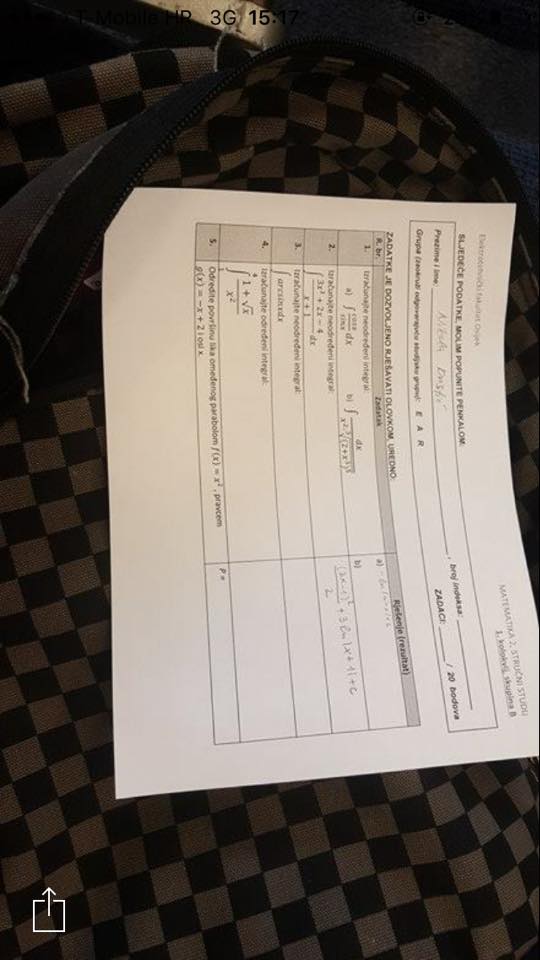 T-Mobile HR 3G 15:17
Elektrotehnički fakultet Osijek
MATEMATIKA 2, STRUČNI STUDIJ
1. kolokvij, skupina B
SLJEDEĆE PODATKE MOLIM POPUNITE PENKALOM:
Prezime i ime: , broj indeksa:
Grupa (zaokruži odgovarajuću studijsku grupu): E A R
ZADACI: / 20 bodova
ZADATKE JE DOZVOLJENO RJEŠAVATI OLOVKOM, UREDNO:
R. br. Zadatak Rješenje (rezultat)
1. Izračunajte neodređeni integral:
a) ∫ cosx/sinx dx b) ∫ dx
a)
b)
2. Izračunajte neodređeni integral:
∫ 3x² + 2x − 4 / x + 1 dx
+ 3 ln|x+1| + c
3. Izračunajte neodređeni integral:
∫ arcsinxdx
4. Izračunajte određeni integral:
∫₁⁴ 1 + √x / x²
5. Odredite površinu lika omeđenog parabolom f(x) = x², pravcem
g(x) = −x + 2 i osi x.
P =